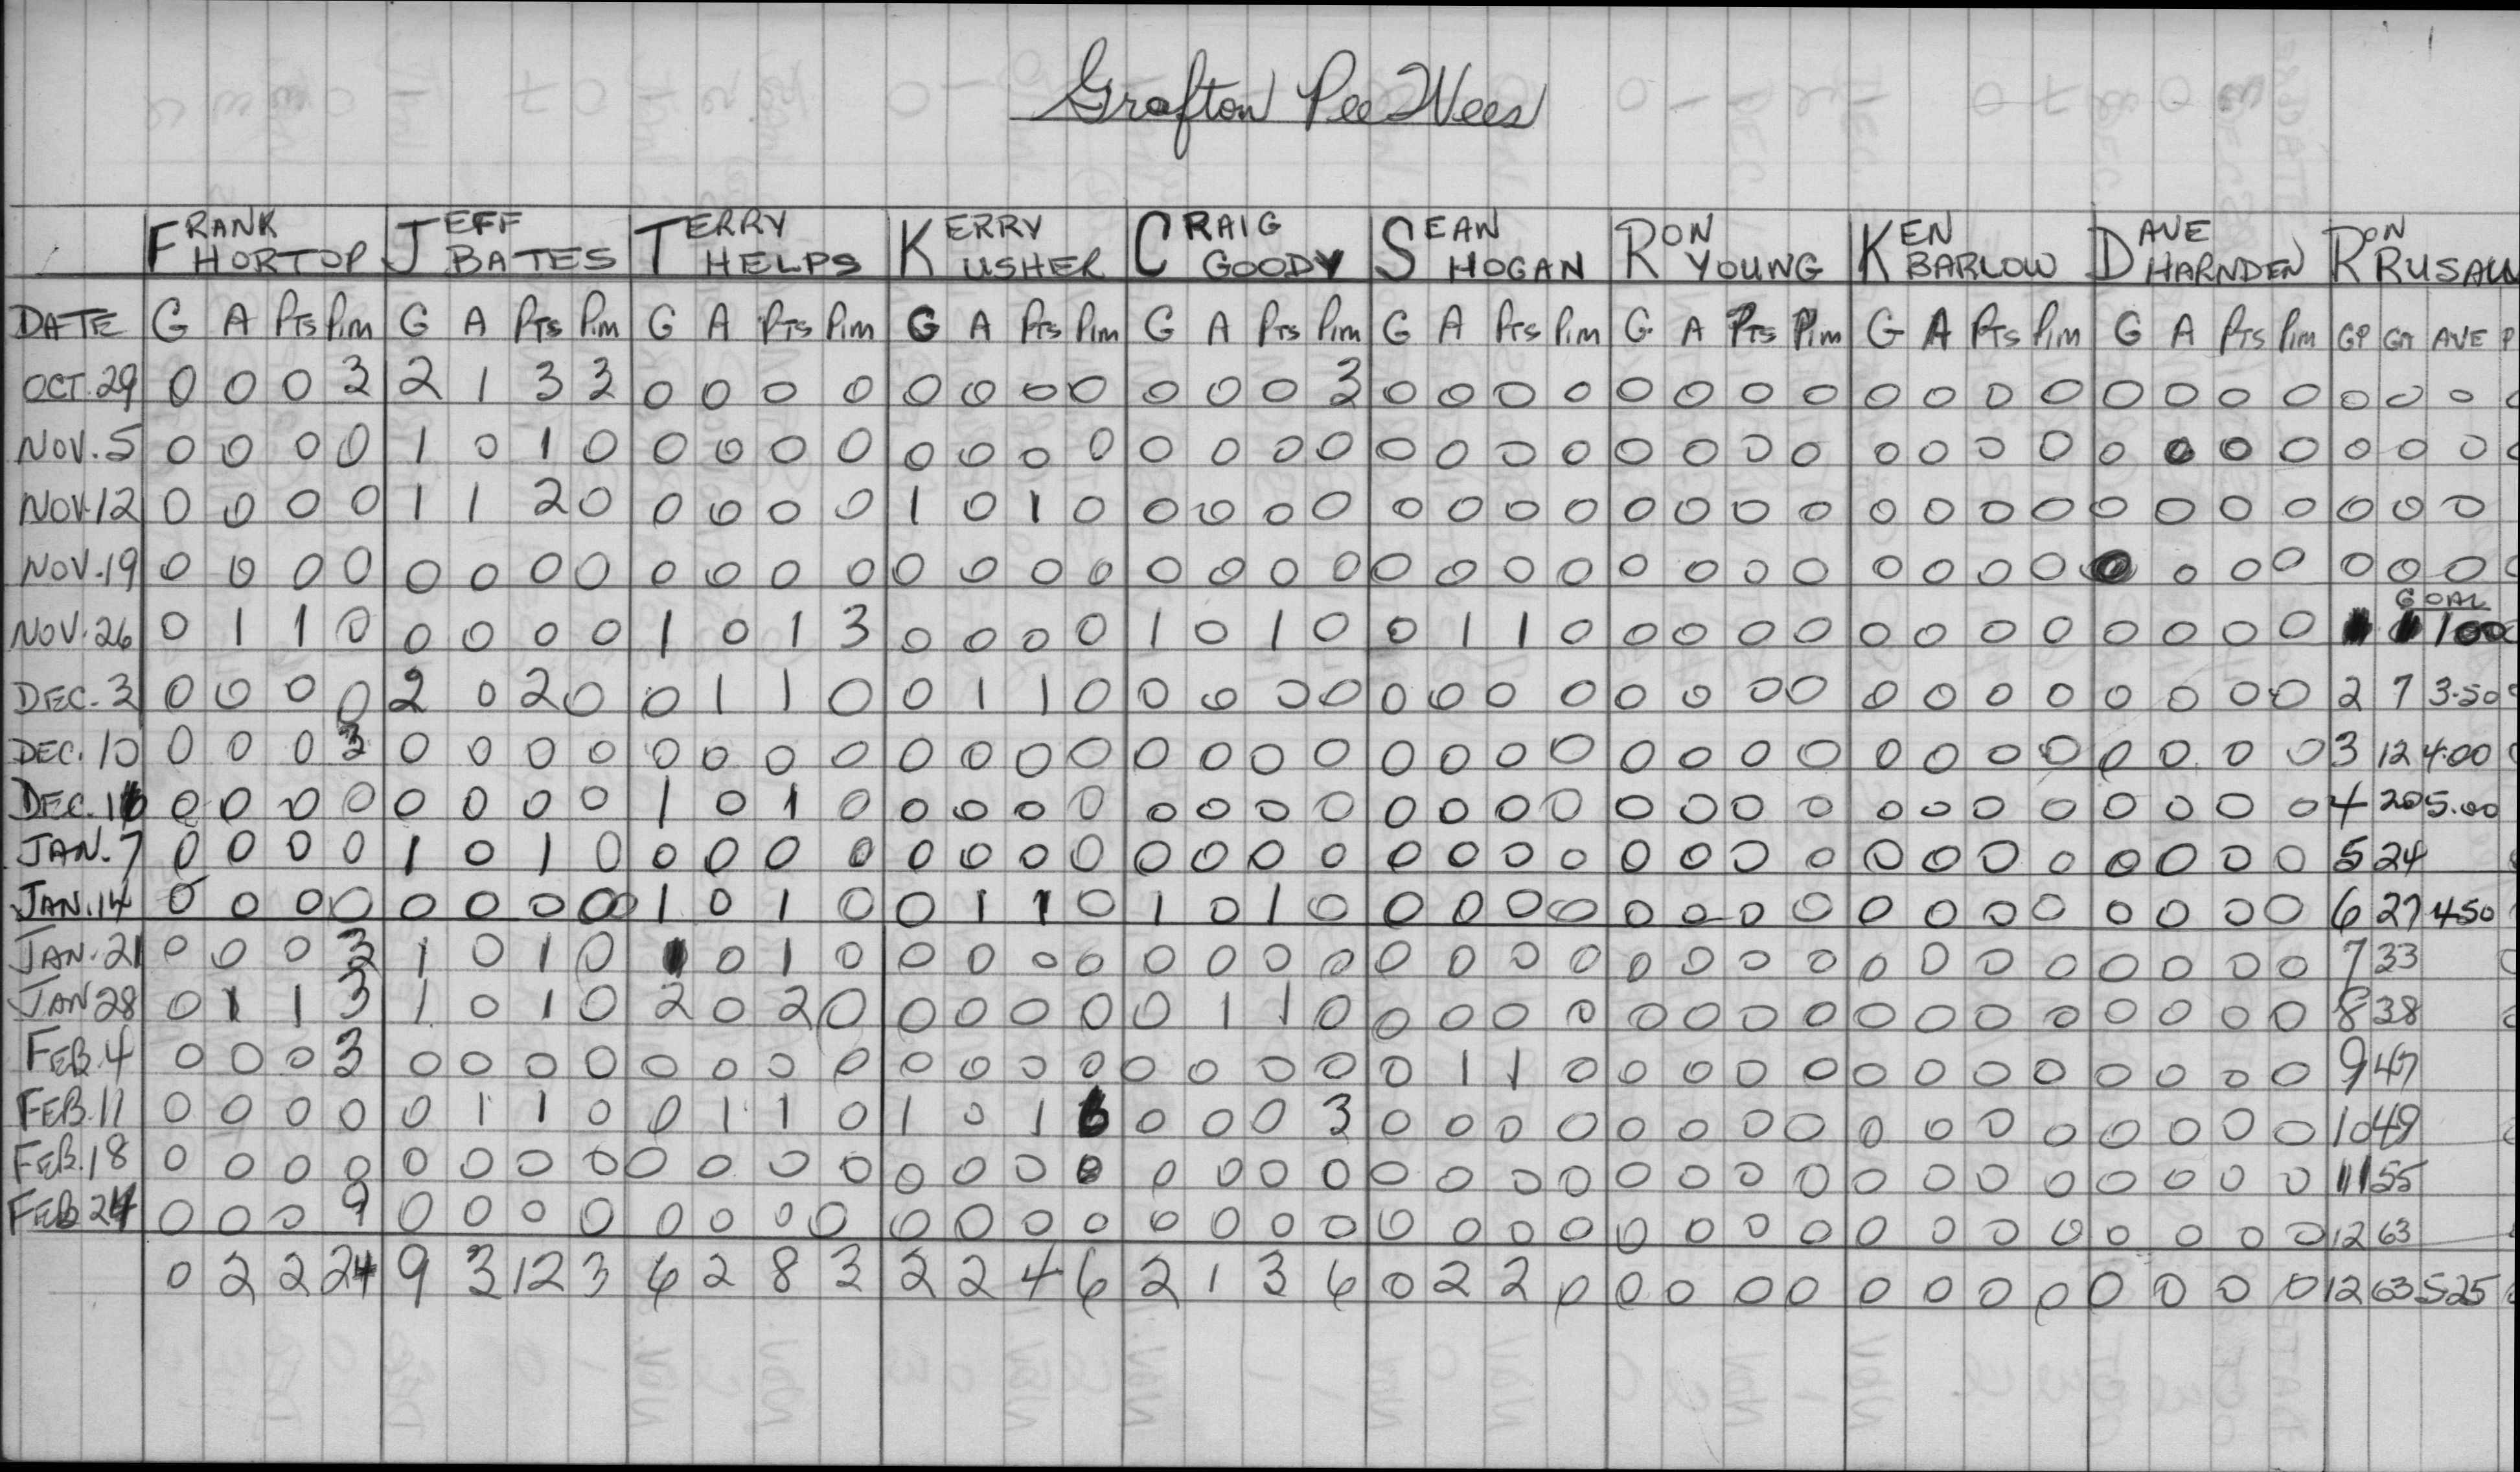 Grafton Pee Wees
FRANK HORTOP JEFF BATES TERRY HELPS KERRY USHER CRAIG GOODY SEAN HOGAN RON YOUNG KEN BARLOW DAVE HARNDEN RON
DATE G A Pts Pim G A Pts Pim G A Pts Pim G A Pts Pim G A Pts Pim G A Pts Pim G A Pts Pim G A Pts Pim G A Pts Pim GP GA AVE P
OCT.29 0 0 0 3 2 1 3 3 0 0 0 0 0 0 0 0 0 0 0 3 0 0 0 0 0 0 0 0 0 0 0 0 0 0 0 0 0 0 0
NOV.5 0 0 0 0 1 0 1 0 0 0 0 0 0 0 0 0 0 0 0 0 0 0 0 0 0 0 0 0 0 0 0 0 0 0 0 0 0 0 0
NOV.12 0 0 0 0 1 1 2 0 0 0 0 0 1 0 1 0 0 0 0 0 0 0 0 0 0 0 0 0 0 0 0 0 0 0 0 0 0 0 0
NOV.19 0 0 0 0 0 0 0 0 0 0 0 0 0 0 0 0 0 0 0 0 0 0 0 0 0 0 0 0 0 0 0 0 0 0 0 0 0 0
GOAL
NOV.26 0 1 1 0 0 0 0 0 1 0 1 3 0 0 0 0 1 0 1 0 0 1 1 0 0 0 0 0 0 0 0 0 0 0 0 0 100
DEC.3 0 0 0 0 2 0 2 0 0 1 1 0 0 1 1 0 0 0 0 0 0 0 0 0 0 0 0 0 0 0 0 0 0 0 0 0 2 7 3.50
DEC.10 0 0 0 3 0 0 0 0 0 0 0 0 0 0 0 0 0 0 0 0 0 0 0 0 0 0 0 0 0 0 0 0 0 0 0 0 3 12 4.00
DEC.16 0 0 0 0 0 0 0 0 1 0 1 0 0 0 0 0 0 0 0 0 0 0 0 0 0 0 0 0 0 0 0 0 0 0 0 0 4 20 5.00
JAN.7 0 0 0 0 1 0 1 0 0 0 0 0 0 0 0 0 0 0 0 0 0 0 0 0 0 0 0 0 0 0 0 0 0 0 0 0 5 24
JAN.14 0 0 0 0 0 0 0 0 1 0 1 0 0 1 1 0 1 0 1 0 0 0 0 0 0 0 0 0 0 0 0 0 0 0 0 0 6 27 450
JAN.21 0 0 0 3 1 0 1 0 1 0 1 0 0 0 0 0 0 0 0 0 0 0 0 0 0 0 0 0 0 0 0 0 0 0 0 0 7 33
JAN 28 0 1 1 3 1 0 1 0 2 0 2 0 0 0 0 0 0 1 1 0 0 0 0 0 0 0 0 0 0 0 0 0 0 0 0 0 8 38
FEB.4 0 0 0 3 0 0 0 0 0 0 0 0 0 0 0 0 0 0 0 0 0 1 1 0 0 0 0 0 0 0 0 0 0 0 0 0 9 47
FEB.11 0 0 0 0 0 1 1 0 0 1 1 0 1 0 1 6 0 0 0 3 0 0 0 0 0 0 0 0 0 0 0 0 0 0 0 0 10 49
FEB.18 0 0 0 0 0 0 0 0 0 0 0 0 0 0 0 0 0 0 0 0 0 0 0 0 0 0 0 0 0 0 0 0 0 0 0 0 11 55
FEB 24 0 0 0 9 0 0 0 0 0 0 0 0 0 0 0 0 0 0 0 0 0 0 0 0 0 0 0 0 0 0 0 0 0 0 0 0 12 63
0 2 2 24 9 3 12 3 6 2 8 3 2 2 4 6 2 1 3 6 0 2 2 0 0 0 0 0 0 0 0 0 0 0 0 0 12 63 525